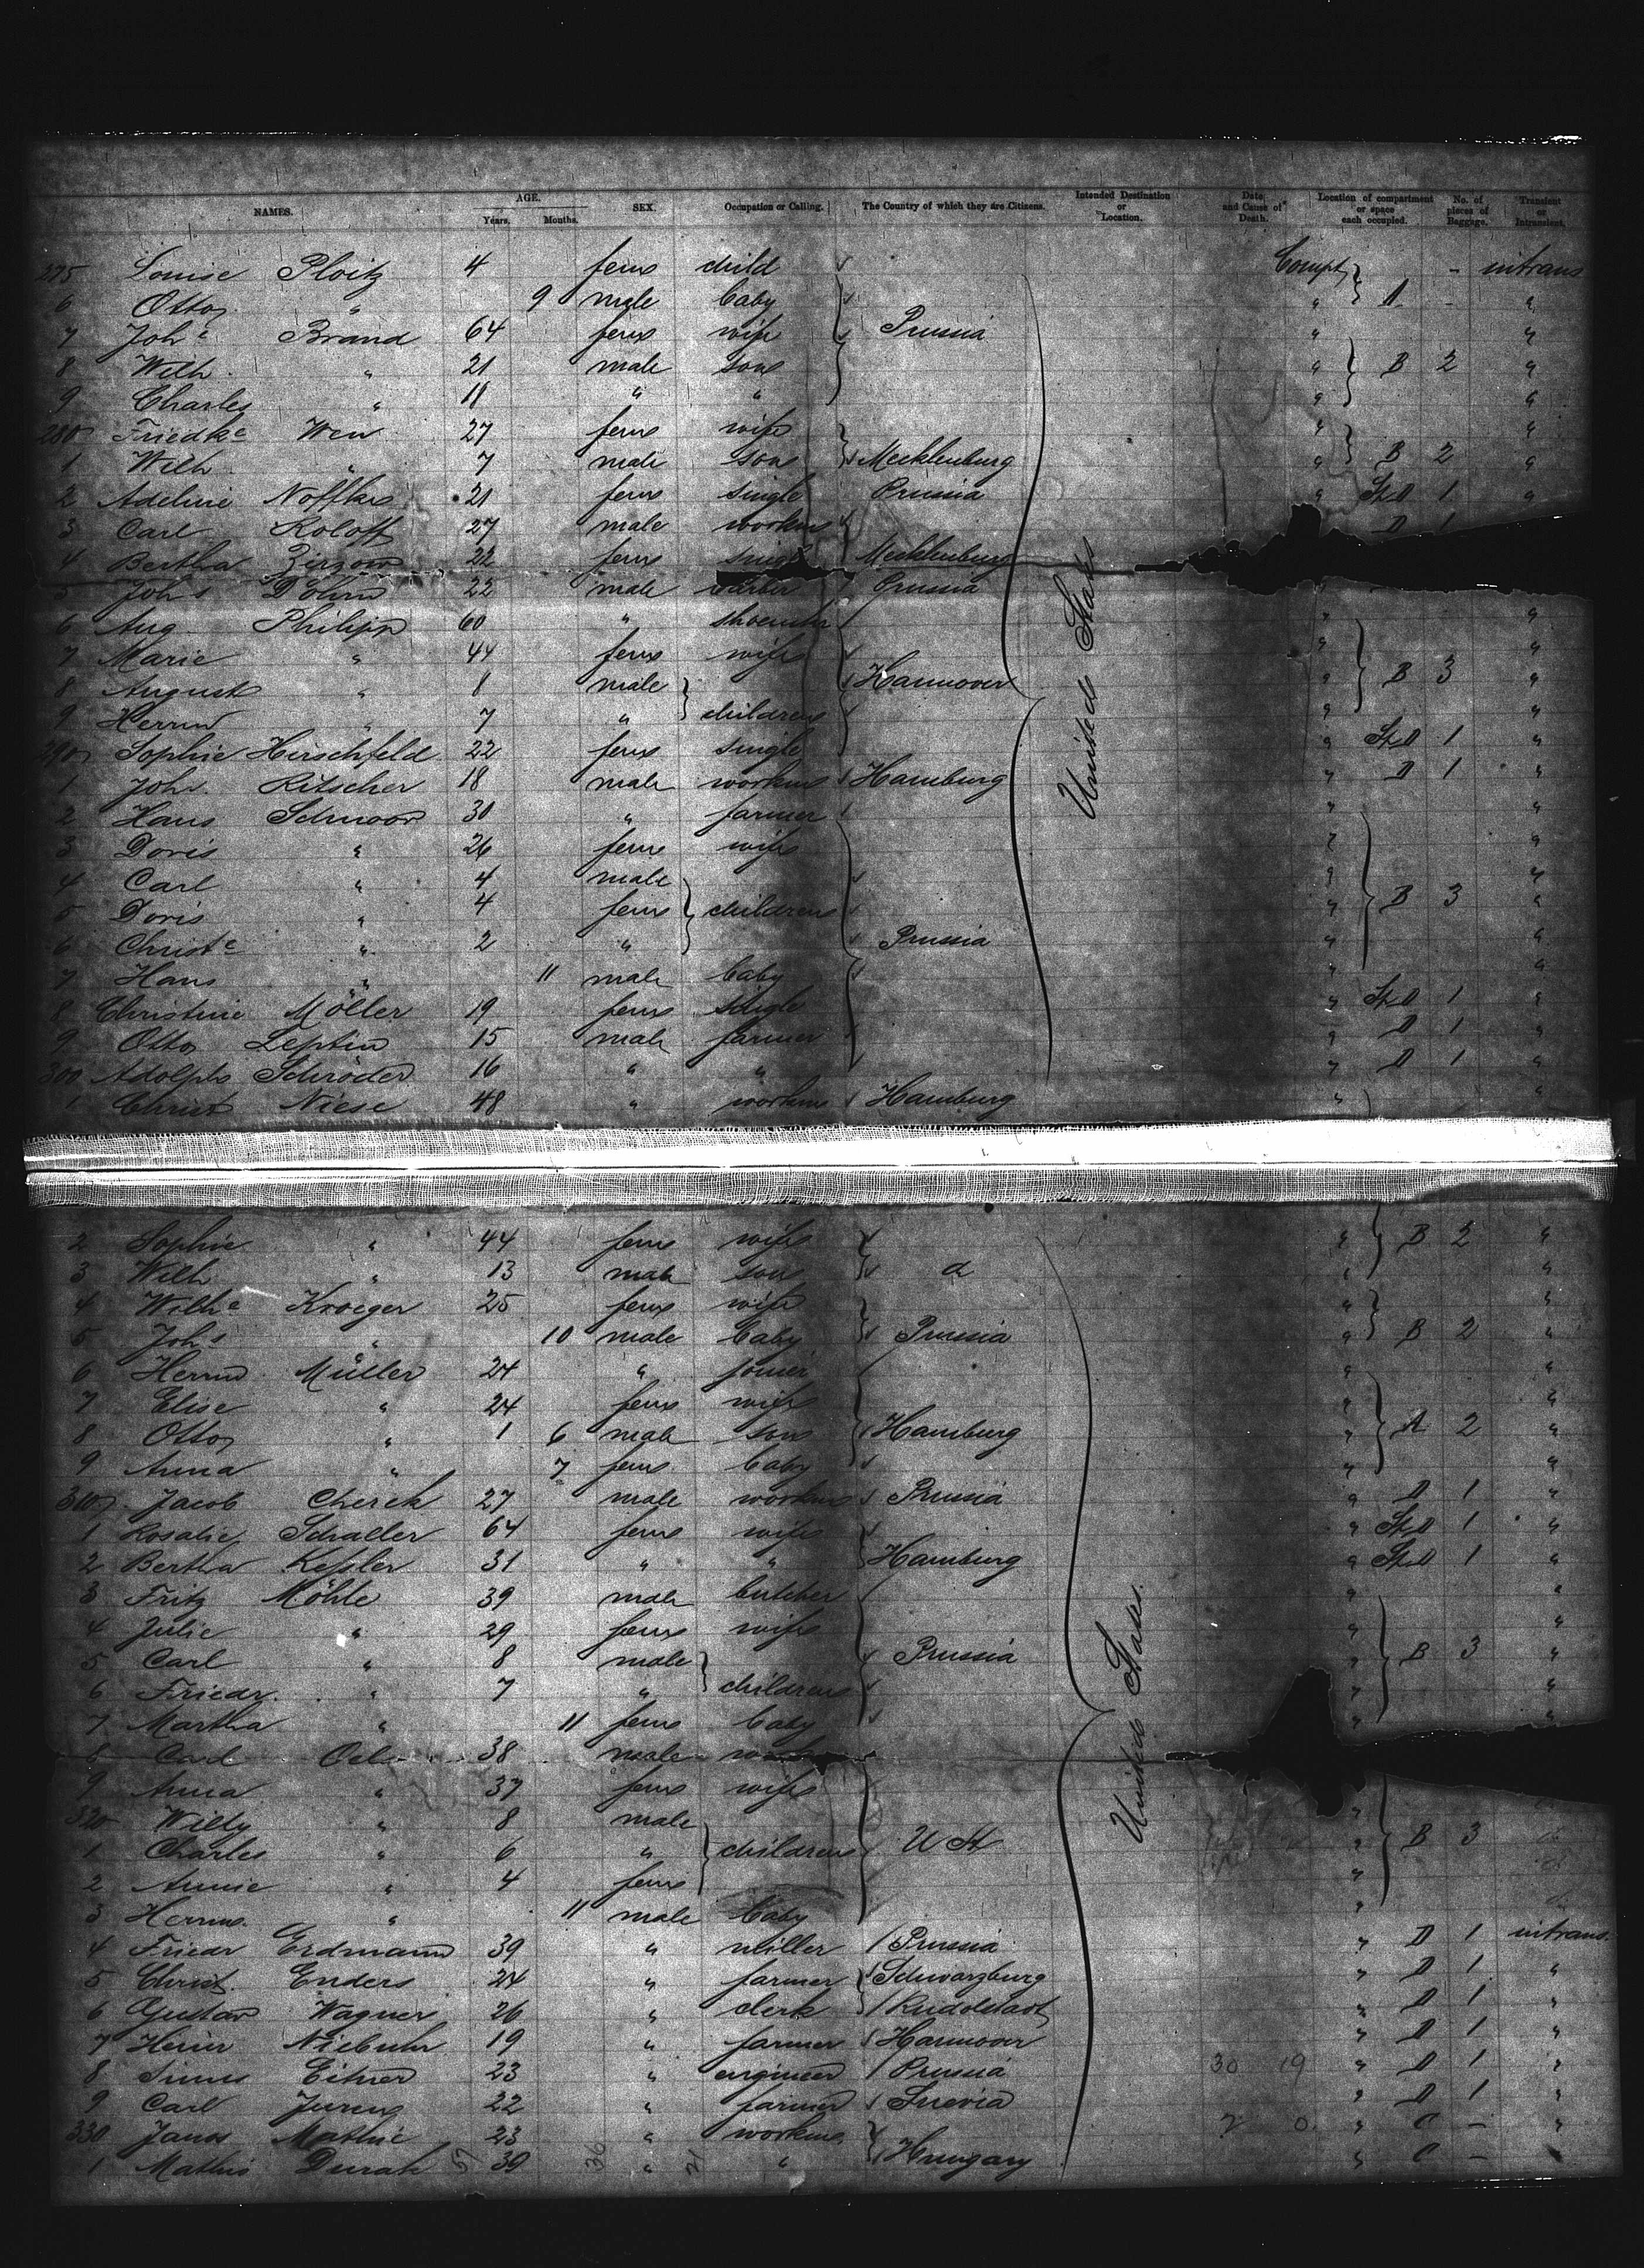 NAMES. AGE. Years. Months. SEX. Occupation or Calling. The Country of which they are Citizens. Intended Destination or Location. Date and Cause of Death. Location of compartment or space each occupied. No. of pieces of Baggage. Transient or Intransient.
275 Louise Ploitz 4 fem child Compt - intrans
6 Otto " 9 male baby " A - "
7 Joh^e Brand 64 fem wife Prussia " "
8 Wilh. " 21 male son " B 2 "
9 Charles " 11 " " " "
280 Friedk^e Wen 27 fem wife " "
1 Wilh " 7 male son Mecklenburg " B 2 "
2 Adeline Noffke 21 fem single Prussia " St.D 1 "
3 Carl Koloff 27 male workm D 1
4 Bertha Zirzow 22 fem single Mecklenburg
5 Joh^s Dohm 22 male barber Prussia
6 Aug Philipp 60 " shoemkr " "
7 Marie " 44 fem wife " "
8 August " 8 male Hannover " B 3 "
9 Herrm " 7 " children " "
290 Sophie Hirschfeld 22 fem single " St.D 1 "
1 Joh. Ritscher 18 male workm Hamburg " D 1 "
2 Hans Schnoor 30 " farmer " "
3 Doris " 26 fem wife " "
4 Carl " 4 male " "
5 Doris " 4 fem children " B 3 "
6 Christ^e " 2 " Prussia " "
7 Hans " 11 male baby " "
8 Christine Möller 19 fem single " St.D 1 "
9 Otto Leptin 15 male farmer " D 1 "
300 Adolph Schröder 16 " " " D 1 "
1 Christ Niese 48 " workm Hamburg " "
United States
2 Sophie " 44 fem wife " B 2 "
3 Wilh " 13 male son d " "
4 Wilh^e Kroeger 25 fem wife " "
5 Joh^s " 10 male baby Prussia " B 2 "
6 Herrm. Müller 24 " joiner " "
7 Elise " 24 fem wife " "
8 Otto " 1 6 male son Hamburg " A 2 "
9 Anna " 7 fem. baby " "
310 Jacob Cherek 27 male workm Prussia " D 1 "
1 Rosalie Schaller 64 fem wife " St.D 1 "
2 Bertha Kepler 31 " " Hamburg " St.D 1 "
3 Fritz Möhle 39 male butcher " "
4 Julie " 29 fem wife " "
5 Carl " 8 male Prussia " B 3 "
6 Friedr. " 7 " children " "
7 Martha " 11 fem baby " "
8 Carl 38 male
9 Anna " 37 fem wife
320 Willy " 8 male "
1 Charles " 6 " children U St " B 3
2 Annie " 4 fem "
3 Herrm. " 11 male baby "
4 Friedr Erdmann 39 " miller Prussia " D 1 intrans.
5 Christ. Enders 24 " farmer Schwarzburg " D 1 "
6 Gustav Wagner 26 " clerk Rudolstadt " D 1 "
7 Heinr Niebuhr 19 " farmer Hannover " D 1 "
8 Eitner 23 " engineer Prussia 30 19 " D 1 "
9 Carl Jureng 22 " farmer Suevia " D 1 "
330 Janos Mathie 23 " workm. 2 0 " C - "
1 Mathis Durak 39 " " Hungary " C - "
United States.